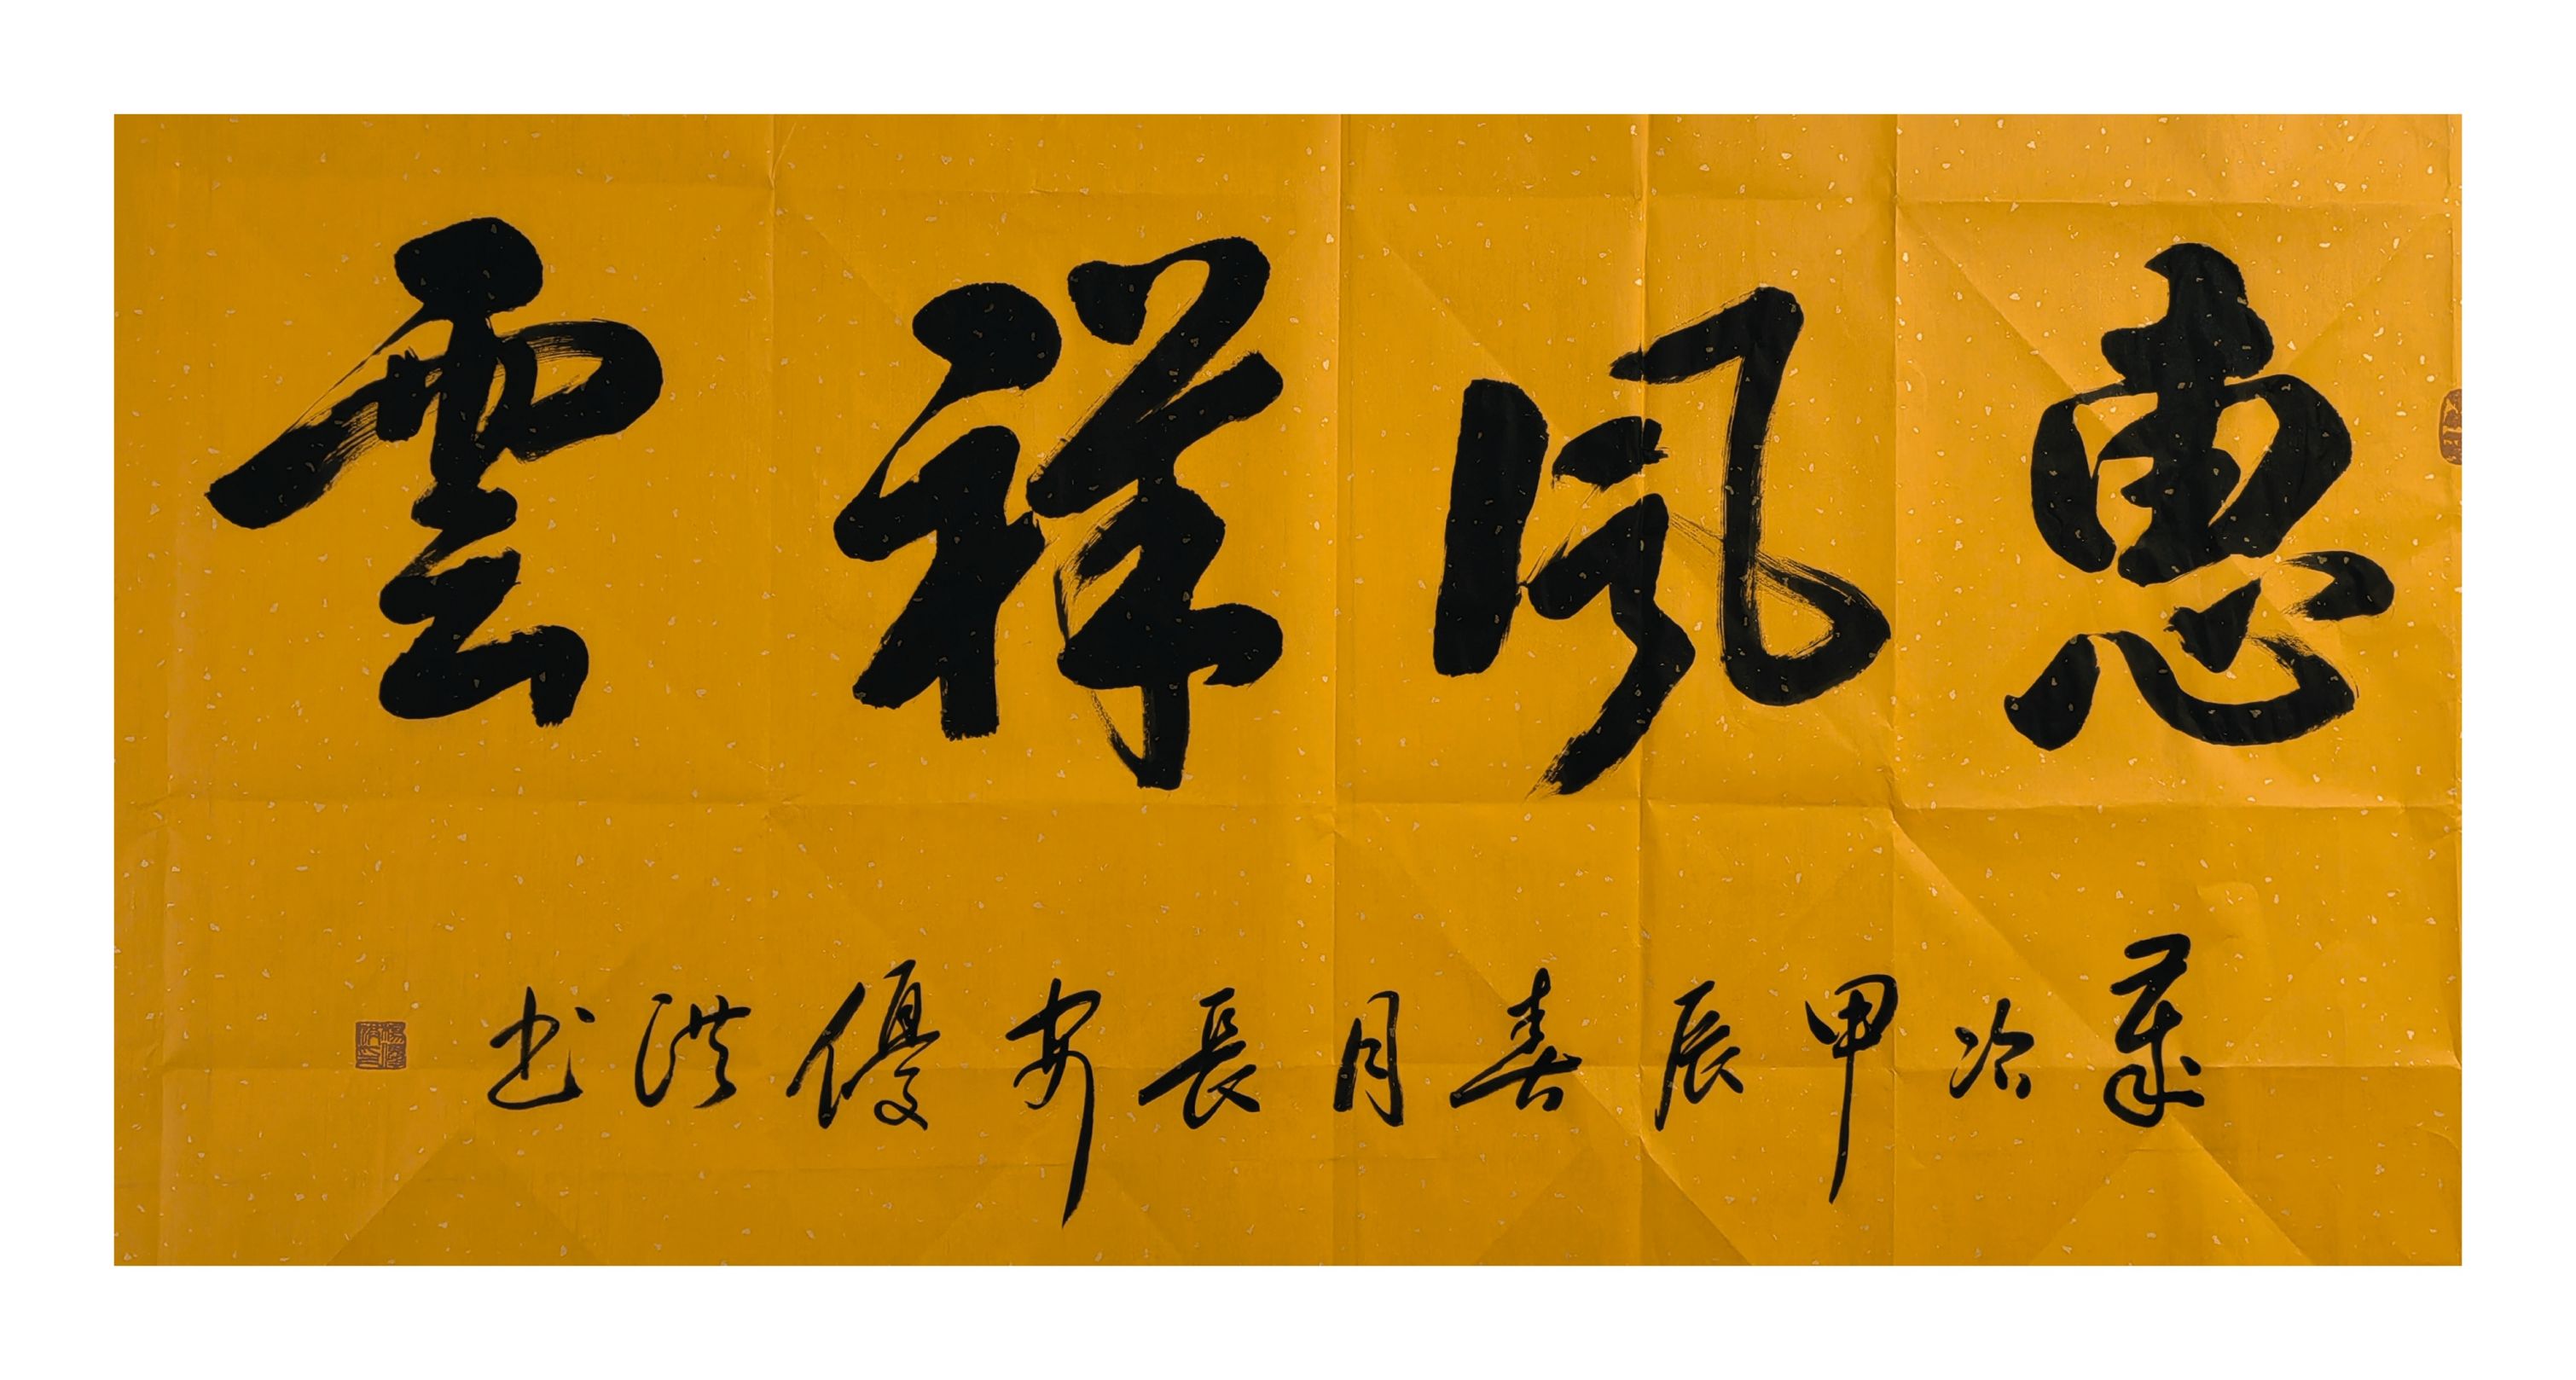 惠風祥雲
歲次甲辰春月長安優洪书